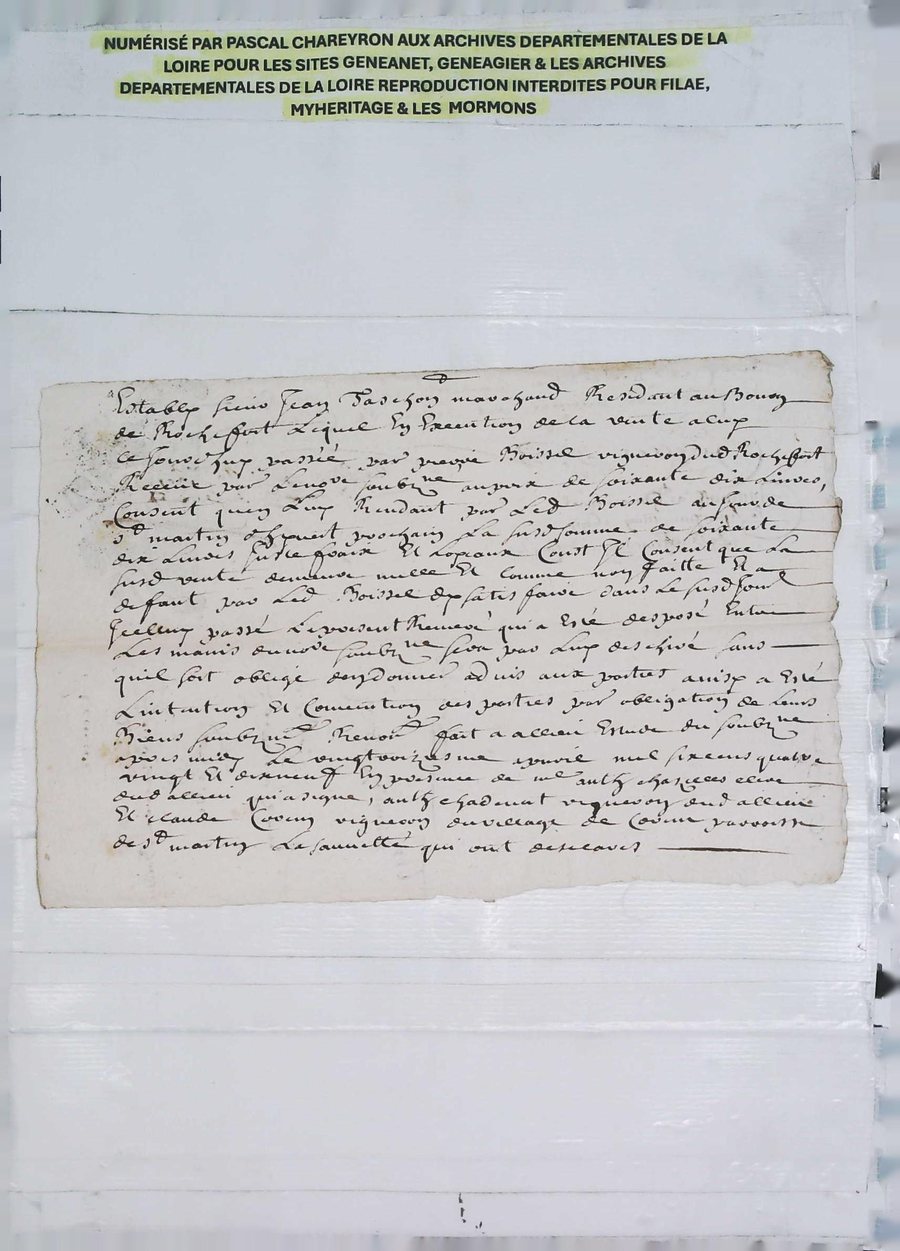 NUMÉRISÉ PAR PASCAL CHAREYRON AUX ARCHIVES DEPARTEMENTALES DE LA
LOIRE POUR LES SITES GENEANET, GENEAGIER & LES ARCHIVES
DEPARTEMENTALES DE LA LOIRE REPRODUCTION INTERDITES POUR FILAE,
MYHERITAGE & LES MORMONS
Establi sieur Jean Taschon marchand Residant au Bourg
de Rochefort Lequel En Execution de la vente a luy
ce jourdhuy passée par pierre Boissel vigneron dud Rochefort
Receue par Le no.re soubz.ne au prix de soixante dix Livres,
Consent quen Luy Rendant par Led Boissel au jour de
s.t martin dhyvert prochain La susd somme de soixante
dix Livres juste fraix Et Loyaux Const Il Consent que La
susd vente demeure nulle Et Comme non faitte Et a
defaut par Led. Boissel dy satisfaire dans Le susd Jour
Icelluy passé Le present Remeré qui a Esté desposé Entre
Les mains du no.re soubz.ne sera par Luy deschiré sans
quil soit obligé den donner advis aux parties ainsy a Esté
Lintention Et Convention des parties par obligation de Leurs
Biens soubz.ni Renon.t fait a allieu Estude du soubz.ne
apres midy Le vingtroiziesme apvril mil six cens quatre
vingt Et dixneuf En presence de m.e anth chazelles
dud allieu qui a signe, anth chadenat vigneron dud allieu
Et claude Corem vigneron du village de Corem parroisse
de s.t martin La sauvetté qui ont desclarés